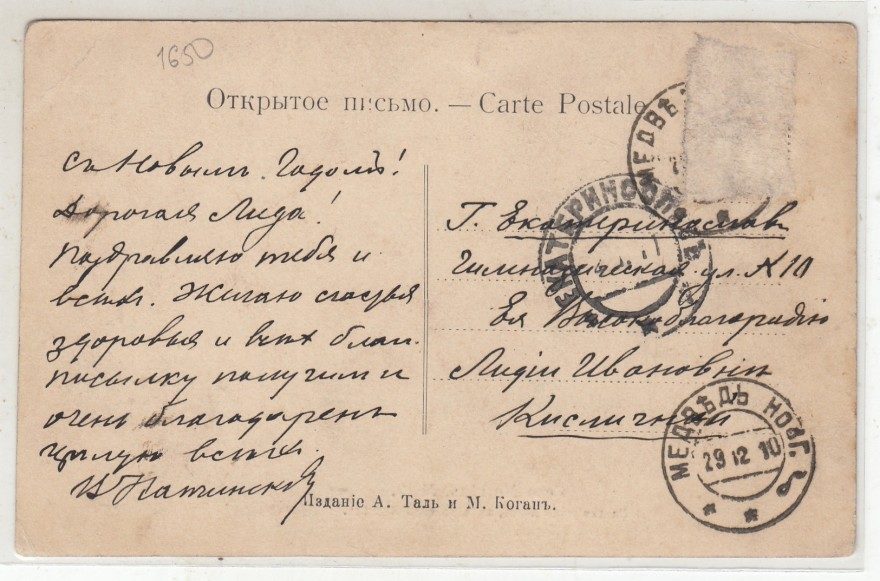 1650
Открытое письмо. — Carte Postale
МЕДВѢ
ЕКАТЕРИНОСЛАВЪ
съ Новымъ Годомъ!
Дорогая Лида!
Поздравляю тебя и
всѣхъ. Желаю счастья
здоровья и всѣх благ.
посылку получил и
очень благодаренъ
цѣлую всѣхъ.
Г. Екатеринослав
Гимназическая ул. № 10
Ея Высокоблагородію
Лидіи Ивановнѣ
Кисличной
МЕДВѢДЬ НОВГ. Г.
29 12 10
Изданіе А. Таль и М. Коганъ.